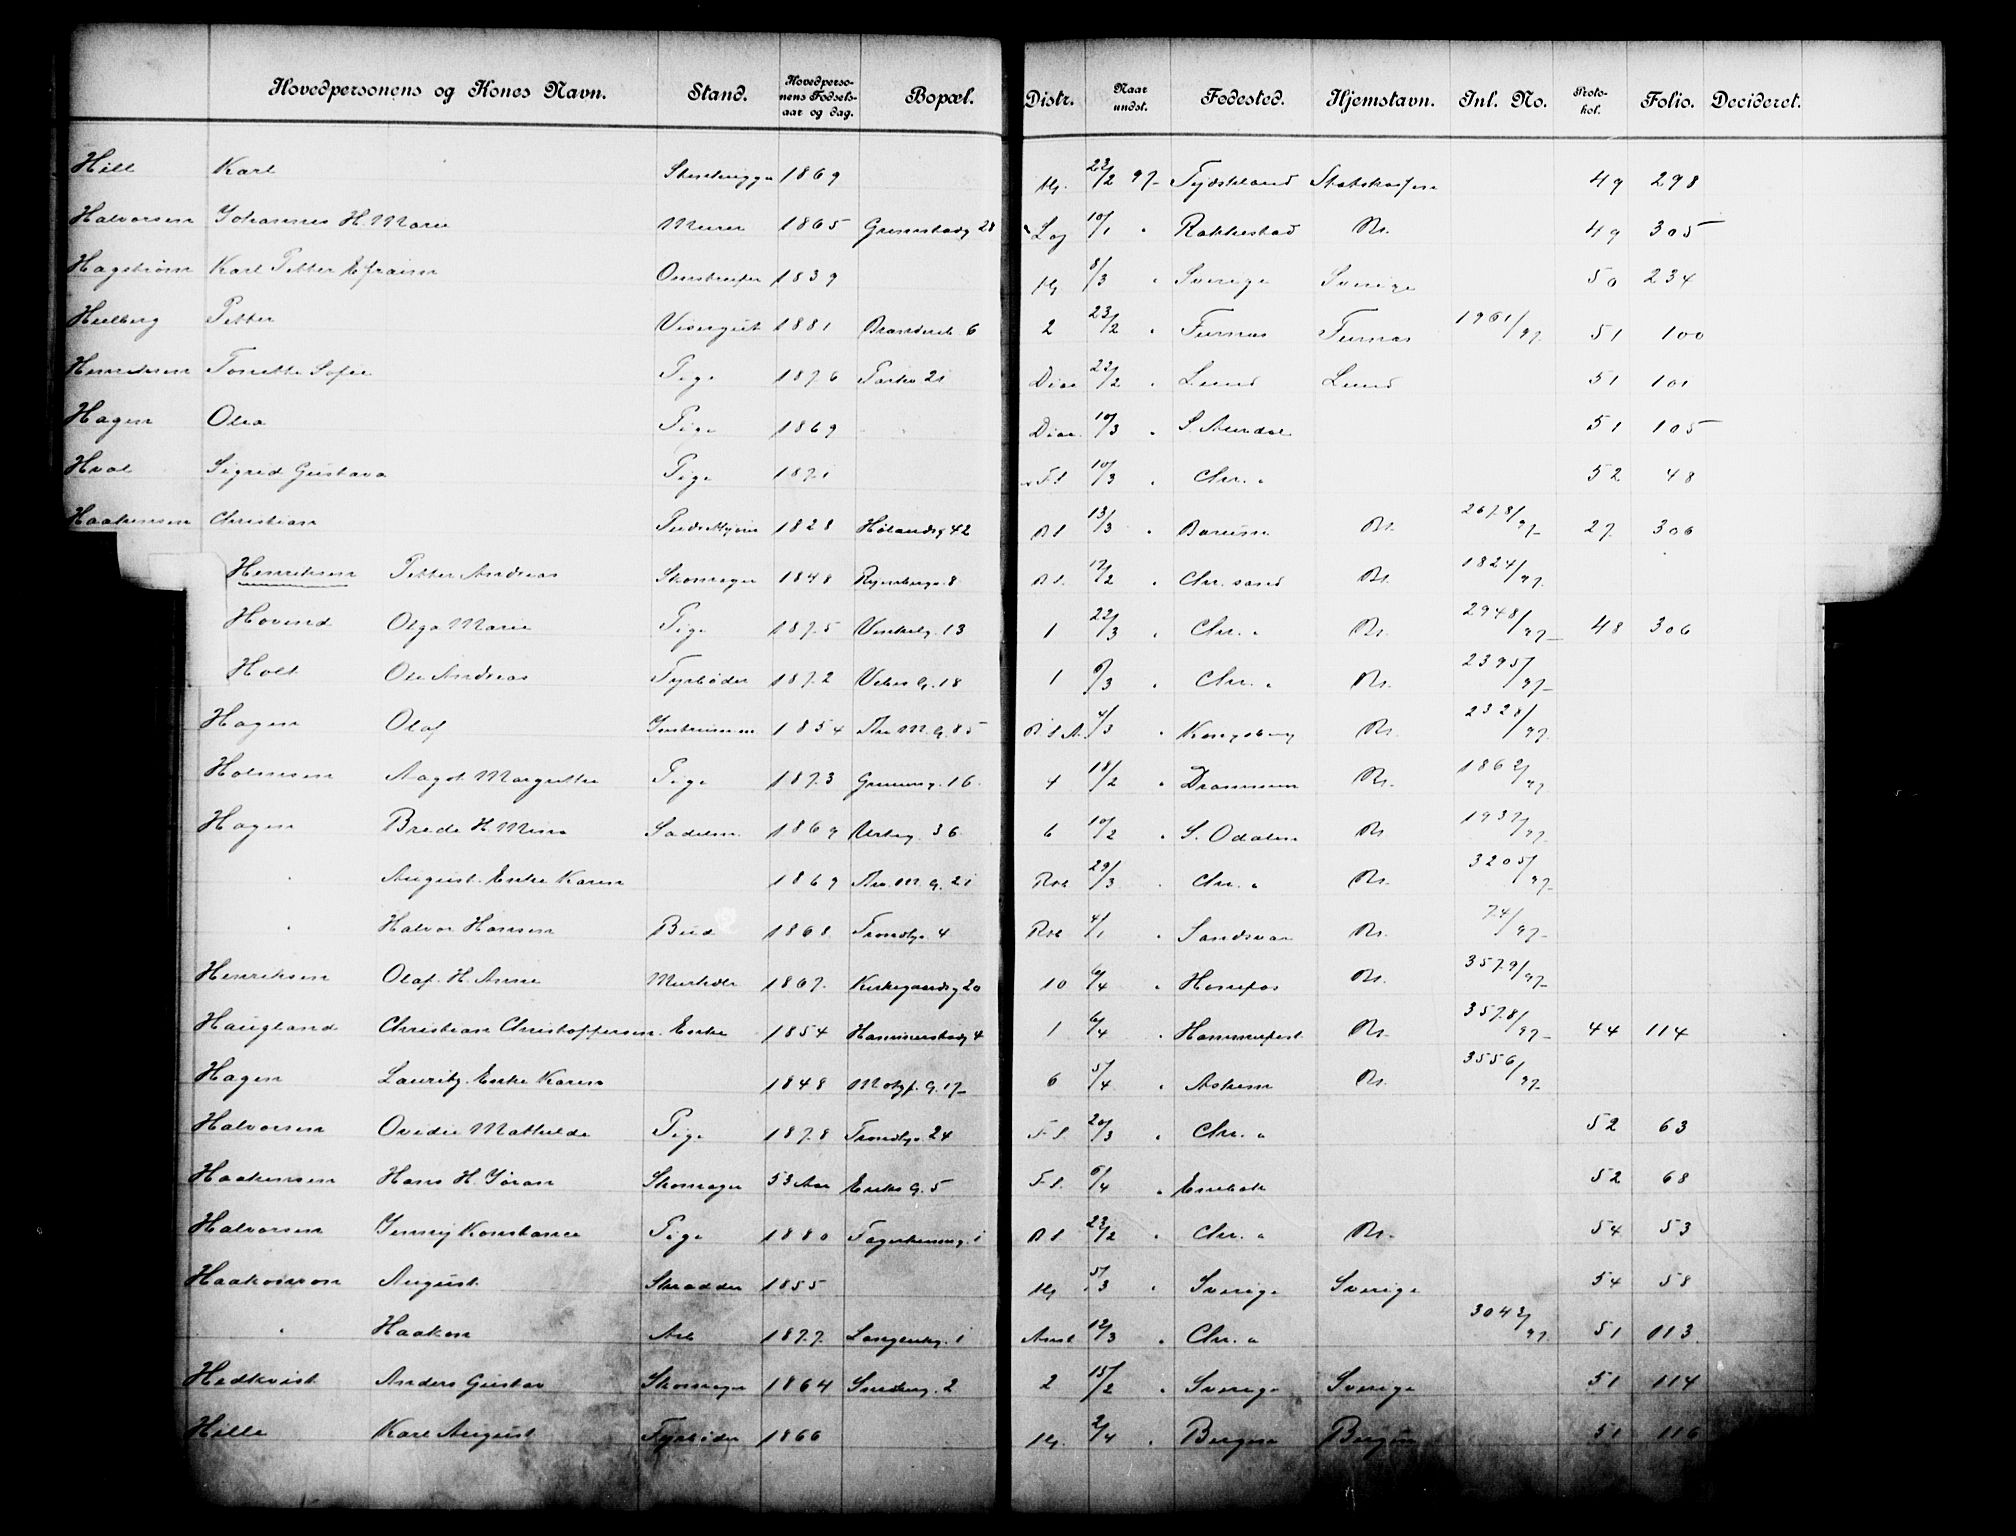 Hovedpersonens og Kones Navn. Stand. Hovedperso-nens Fødsels-aar og dag. Bopæl. Distr. Naar undst. Fødested. Hjemstavn. Inl. No. Proto-kol. Folio. Decideret.
Hill Karl 1869 Hj. 22/2 97 Tydskland Statskassen 49 298
Halvorsen Johannes H. Marie Murer 1865 28 10/1 " Rakkestad Kr. 49 305
Hagstrøm Karl Petter Efraim 1839 Hj 8/3 " Sverige Sverige 50 234
Petter Visergut 1881 6 2 23/2 " Furnæs Furnæs 1961/97 51 100
Henriksen Sofie Pige 1876 21 Diac 22/2 " Lund Lund 51 101
Hagen Olea Pige 1869 Diac. 10/3 " S. Aurdal 51 105
Hval Sigrid Gustava Pige 1871 F.f. 10/3 " Chr. " 52 48
Haakensen Christian 1828 Hølandsg 42 13/3 " Bærum Kr. 2678/97 27 306
Henriksen Petter Andreas Skomager 1848 8 12/2 " Chr. sand Kr. 1824/97
Hovind Olga Marie Pige 1875 Vinkelg. 13 1 22/3 " Chr. " Kr. 2948/97 48 306
Holt Ole Andreas Fyrbøder 1872 18 1 6/3 " Chr. " Kr. 2395/97
Hagen Olaf 1854 85 4/3 " Kongsberg Kr. 2328/97
Holmsen Aagot Margrethe Pige 1873 16 4 18/2 " Drammen Kr. 1862/97
Hagen Brede H. Mina Sadelm. 1869 Urteg. 36 6 10/2 " S. Odalen Kr. 1937/97
" August. Enke Karen 1869 21 29/3 " Chr. " Kr. 3205/97
" Halvor Hansen Bud 1868 Trondhj. 4 4/1 " Sandsvær Kr. 74/97
Henriksen Olaf. H. Anne 1867 Kirkegaardsg 20 10 6/4 " Hønefos Kr. 3579/97
Haugland Christian Christoffersen. Enke 1854 Hammerstadg 4 1 6/4 " Hammerfest Kr. 3578/97 44 114
Hagen Lauritz. Enke Karen 1848 17 6 5/4 " Askim Kr. 3556/97
Halvorsen Ovidie Mathilde Pige 1878 Trondhj. 24 F.f. 20/3 " Chr. " 52 63
Haakensen Hans H. Jøran Skomager 53 Aar Eriks G. 5 F.f. 6/4 " Enebak 52 68
Halvorsen Jenny Konstance Pige 1880 1 23/2 " Chr. " Kr. 54 53
August Skrædder 1855 Hj 5/3 " Sverige Sverige 54 58
" Haakon Arb 1877 1 12/3 " Chr. " 3042/97 51 113
Hedkvist Anders Gustav Skomager 1864 Smedg. 2 2 15/2 " Sverige Sverige 51 114
Hille Karl August Fyrbøder 1866 Hj. 2/4 " Bergen Bergen 51 116